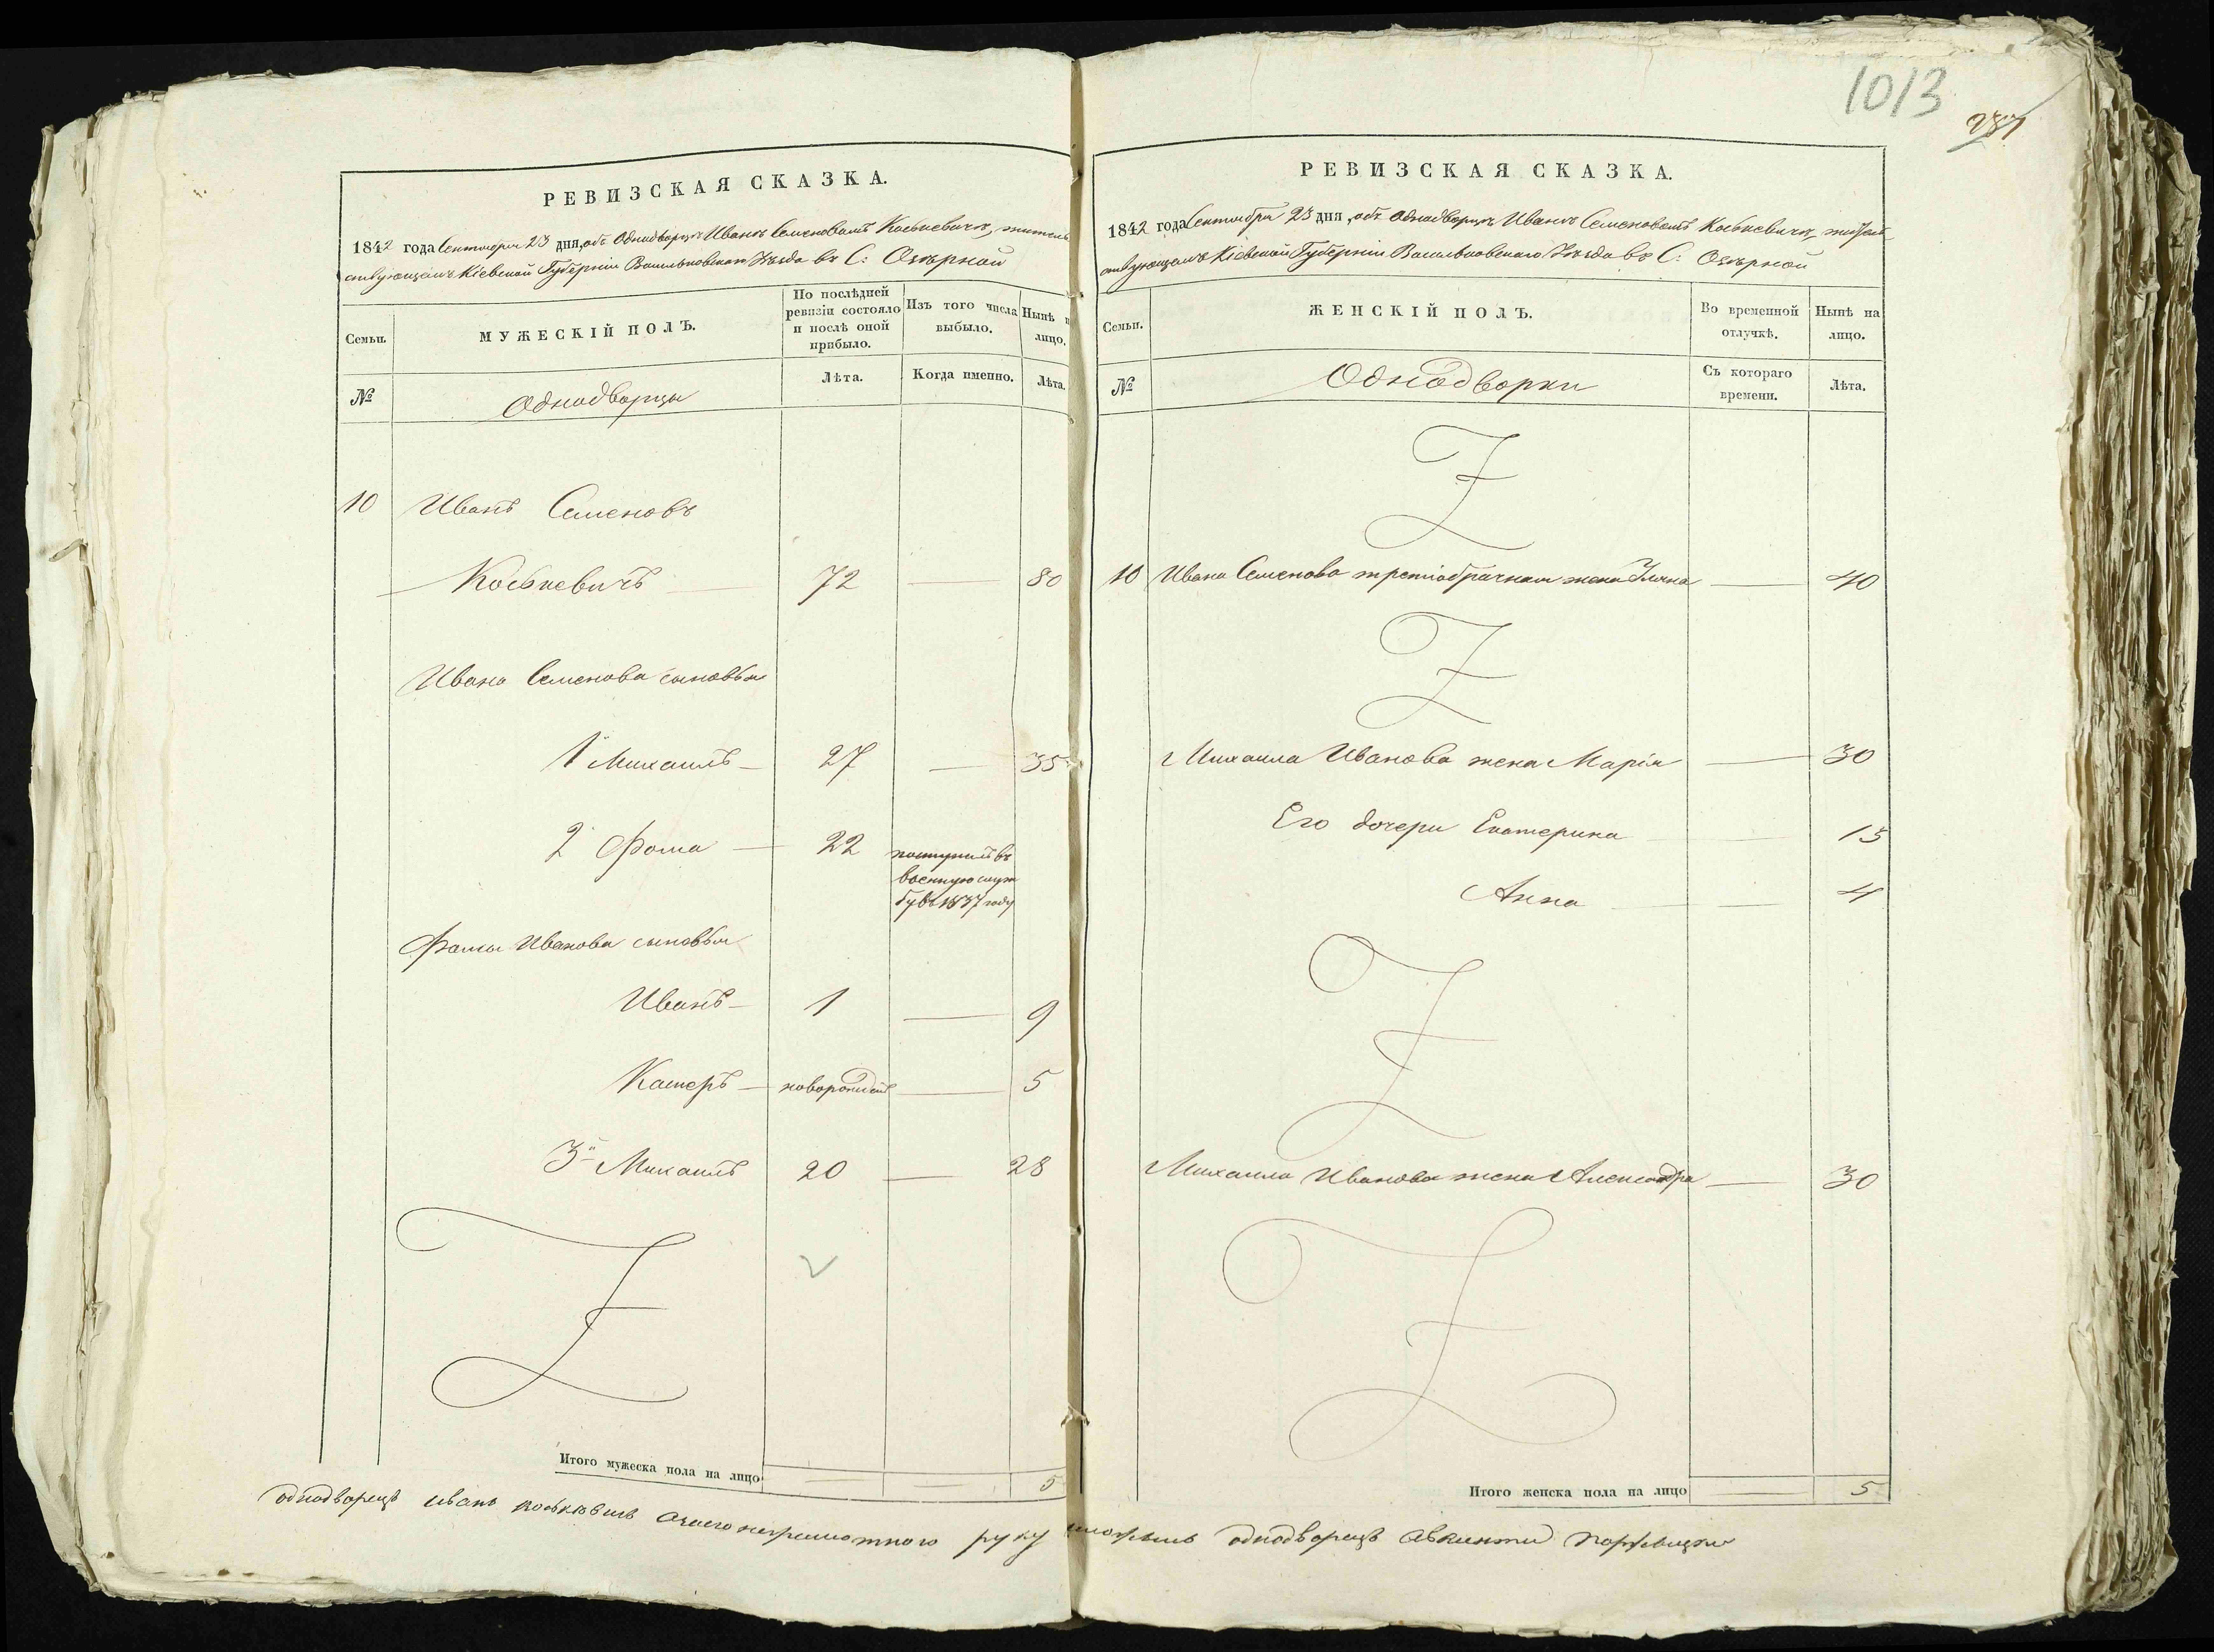 РЕВИЗСКАЯ СКАЗКА.
1842 года Сентября 23 дня, объ Однодворцѣ Иванѣ Семеновомъ Коськевичѣ, житель-
ствующемъ Кіевской Губерніи Васильковскаго Уѣзда въ С: Озѣрной
Семьи.
МУЖЕСКІЙ ПОЛЪ.
По послѣдней
ревизіи состояло
и послѣ оной
прибыло.
Изъ того числа
выбыло.
Нынѣ н
лицо.
№
Однодворцы
Лѣта.
Когда именно.
Лѣта.
10 Иванъ Семеновъ
Коськевичъ — 72 — 80
Ивана Семенова сыновья
1й Михаилъ — 27 — 35
2й Фома — 22 поступилъ въ
военную служ
бу въ 1837 году
Фомы Иванова сыновья
Иванъ — 1 — 9
Касперъ — новорожден — 5
3й Михаилъ 20 — 28
Итого мужеска пола на лицо — — 5
1013
287
РЕВИЗСКАЯ СКАЗКА.
1842 года Сентября 23 дня, объ Однодворцѣ Иванѣ Семеновомъ Коськевичѣ, житель-
ствующемъ Кіевской Губерніи Васильковскаго Уѣзда въ С: Озѣрной
Семьи.
ЖЕНСКІЙ ПОЛЪ.
Во временной
отлучкѣ.
Нынѣ на
лицо.
№
Однодворки
Съ котораго
времени.
Лѣта.
10 Ивана Семенова третіобрачная жена — 40
Михаила Иванова жена Марія — 30
Его дочери Екатерина — 13
Анна — 4
Михаила Иванова жена Александра — 30
Итого женска пола на лицо — 5
однодворецъ иванъ коськѣвичъ неграмотного руку однодворецъ